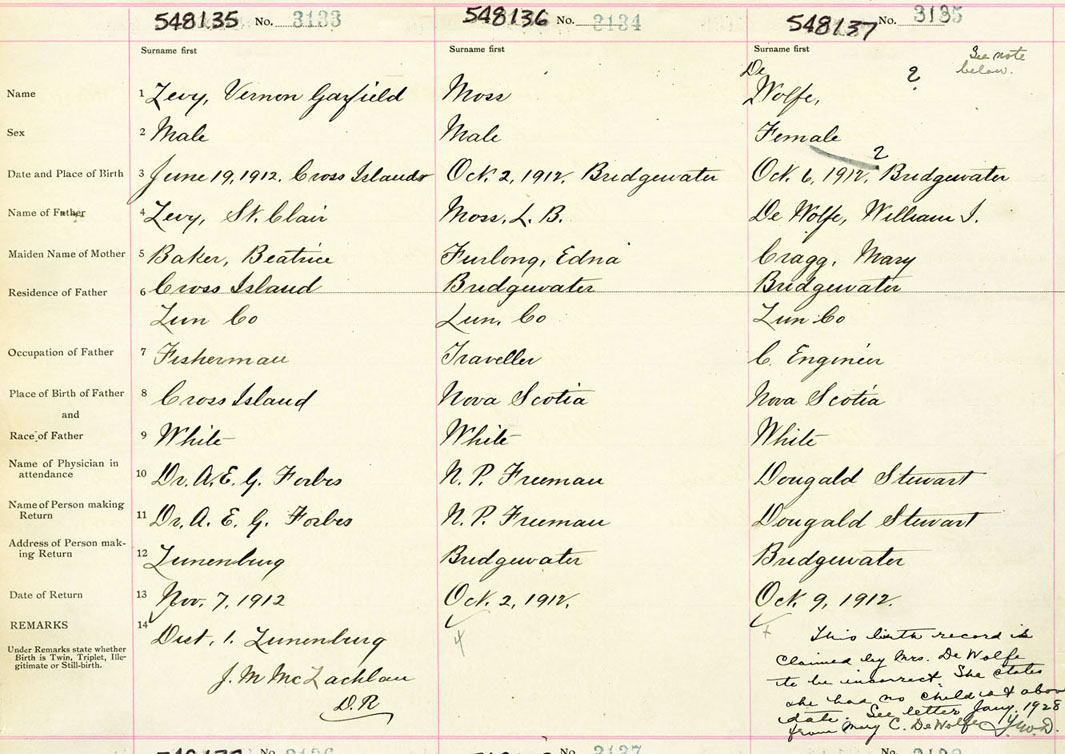 548135 No. 3133
548136 No. 3134
548137 No. 3135
Surname first
Surname first
Surname first
See note
below.
Name
1 Levy, Vernon Garfield
Moss
De
Wolfe,
?
Sex
2 Male
Male
Female
?
Date and Place of Birth
3 June 19, 1912, Cross Islands
Oct. 2, 1912, Bridgewater
Oct. 6, 1912, Bridgewater
Name of Father
4 Levy, St. Clair
Moss, L. B.
De Wolfe, William I.
Maiden Name of Mother
5 Baker, Beatrice
Furlong, Edna
Cragg, Mary
Residence of Father
6 Cross Island
Lun Co
Bridgewater
Lun. Co
Bridgewater
Lun Co
Occupation of Father
7 Fisherman
Traveller
C. Engineer
Place of Birth of Father
8 Cross Island
Nova Scotia
Nova Scotia
and
Race of Father
9 White
White
White
Name of Physician in
attendance
10 Dr. A. E. G. Forbes
N. P. Freeman
Dougald Stewart
Name of Person making
Return
11 Dr. A. E. G. Forbes
N. P. Freeman
Dougald Stewart
Address of Person mak-
ing Return
12 Lunenburg
Bridgewater
Bridgewater
Date of Return
13 Nov. 7, 1912
Oct. 2, 1912.
Oct. 9, 1912.
REMARKS
Under Remarks state whether
Birth is Twin, Triplet, Ille-
gitimate or Still-birth.
14 Dist, 1. Lunenburg
J. M McLachlan
D. R
This birth record is
claimed by Mrs. De Wolfe
to be incorrect. She states
she had no child at above
date. See letter Jany. 1928
from Mary C. DeWolfe
No. 3136
No. 3137
No.